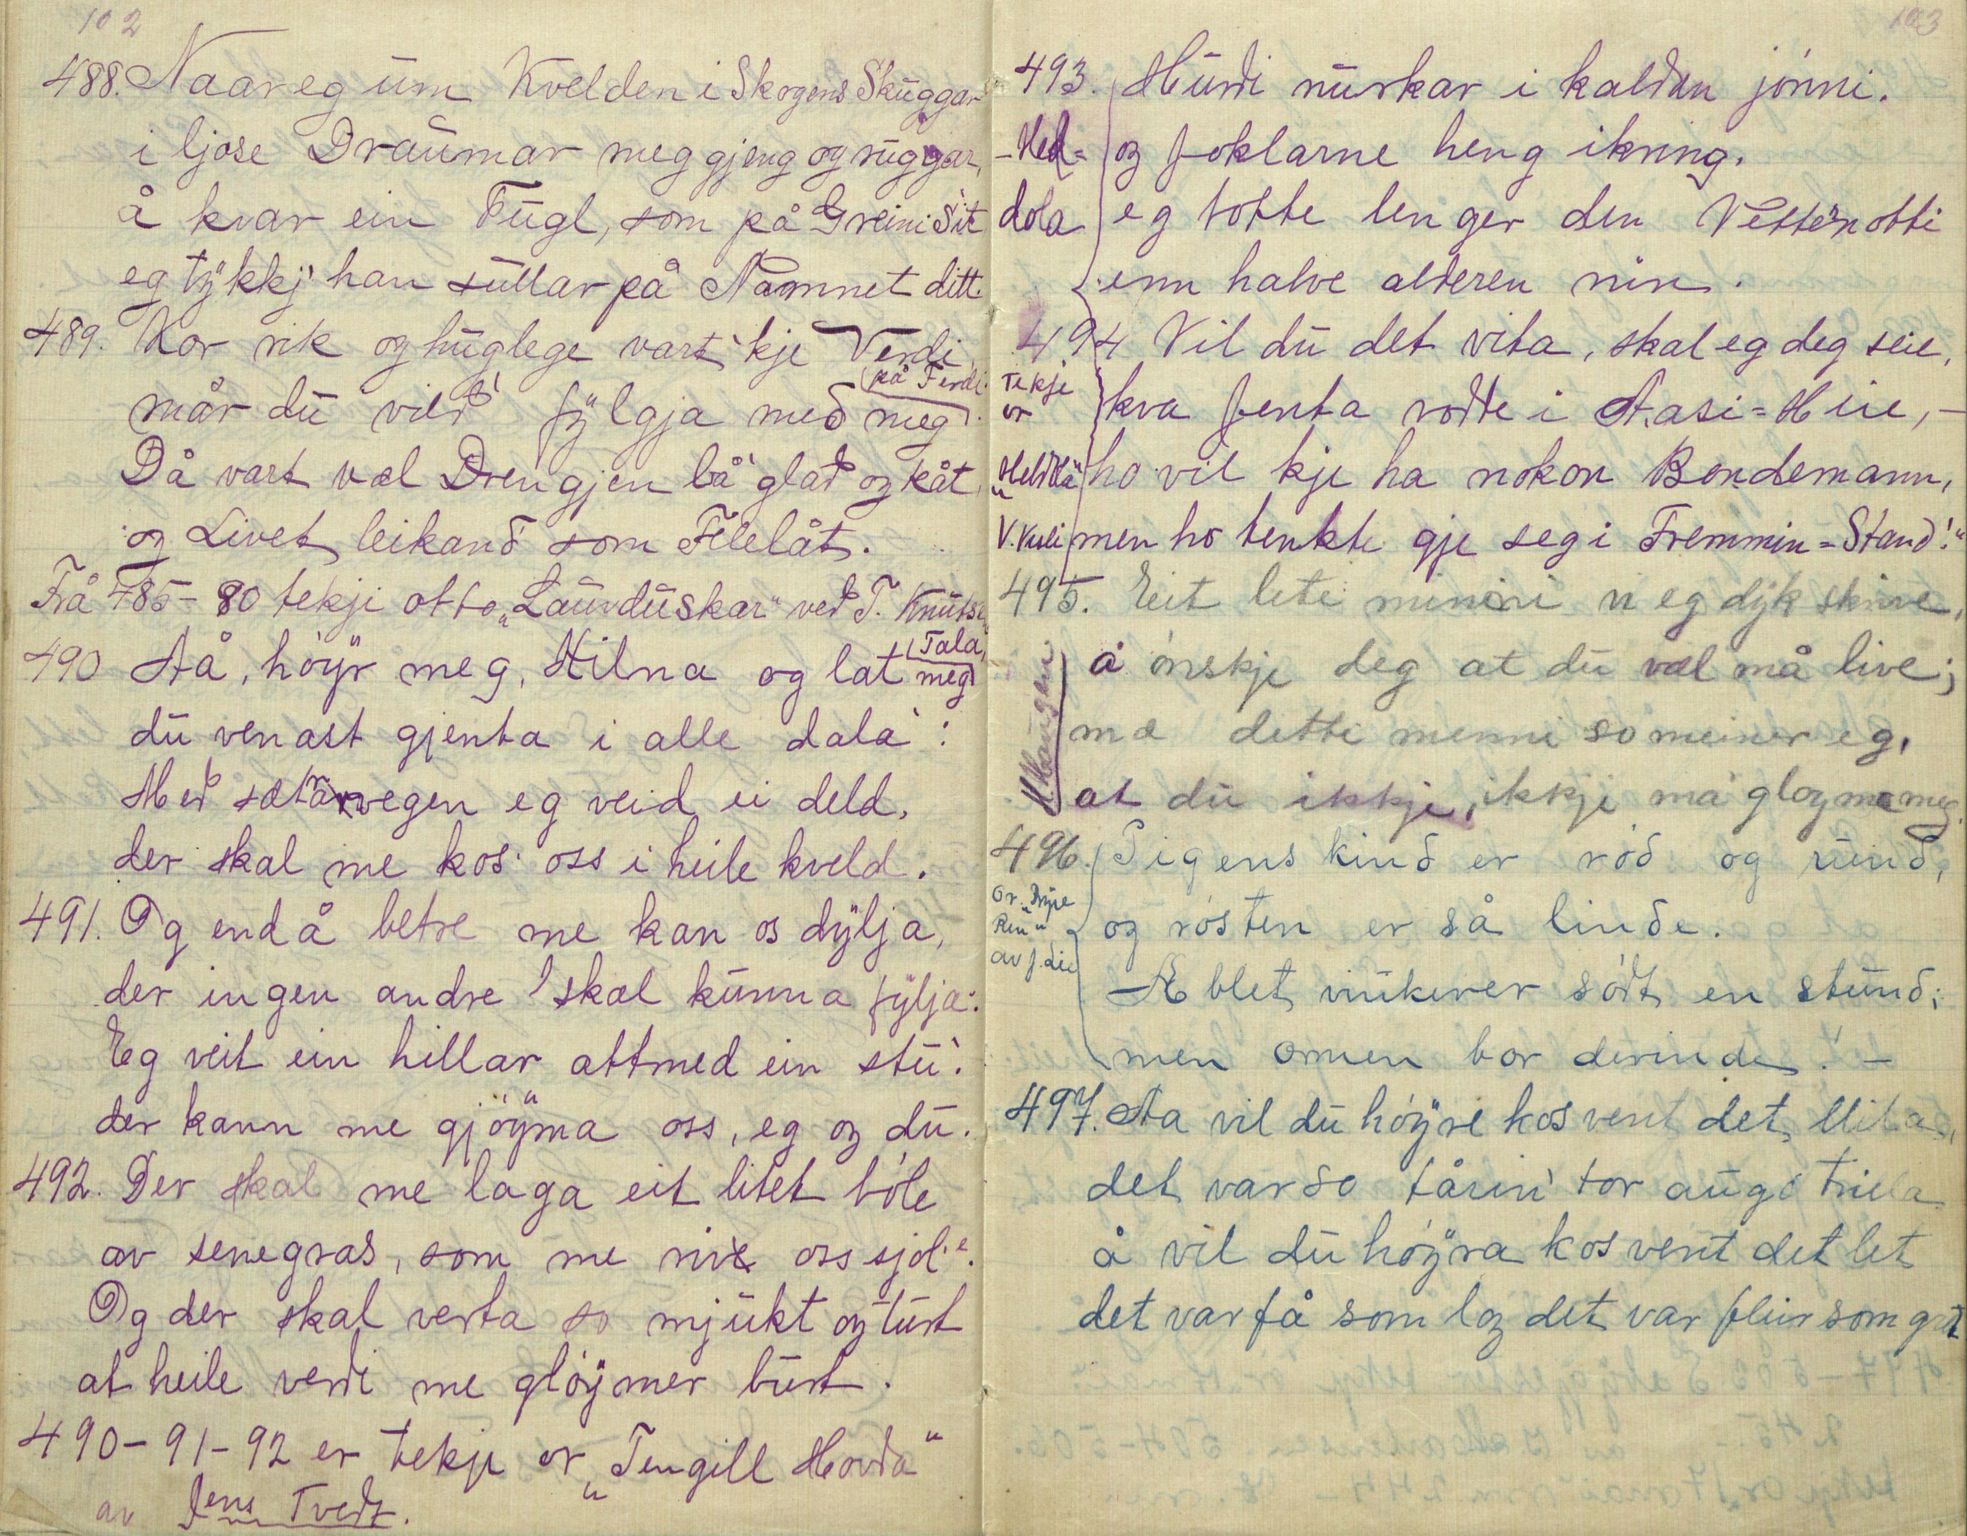 102
488. Naar eg um Kvelden i Skogens Skuggar
i ljose Draumar meg gjeng og ruggar,
å kvar ein Fugl, som på Greini Sit
eg tykkj' han sullar på Namnet ditt.
489. Kor rik og huglege vart' kje Verdi
på Ferdi
når du vild' fylgja med meg.
Då vart væl Drengjen bå' glað og kåt,
og Livet leikanð som Felelåt.
Frå 485-80 tekji otto „Laurduskar" með T. Knutsen
490 Aå, høyr meg, Hilna og lat meg
Tala,
du venast gjenta i alle dala':
Með sætarvegen eg veid ei deld,
der skal me kos' oss i heile kveld.
491. Og endå betre me kan os dylja,
der ingen andre skal kunna fylja:
Eg veit ein hillar attmed ein stu'.
der kann me gjøyma oss, eg og du.
492. Der skal me laga eit litet bøle
av senegras, som me rive oss sjøl'e.
Og der skal verta so mjukt og turt
at heile verdi me gløymer burt.
490-91-92 er tekje or „Tengill Hovda"
av Jens Tvedt.
103
493. Hurði nurkar i kaldan jønni.
-Hed=
og foklarne heng ikring.
dola
eg totte lenger den Vettenotti
enn halve alderen min.
494 Vil du det vita, skal eg deg seie,
Tekje
or
kva jenta rodde i Aasi=Heie, -
„Heldøla"
ho vil kje ha nokon Bondemann,
V. Kuli
men ho tenkte gje seg i Fremmin=Stand!"
495. Eit lete minni vi eg dyk skrive,
å ønskje deg at du væl må live;
H Haugen
mæ detti menni so meiner eg,
at du ikkje, ikkje må gløyma meg.
496. Pigens kinð er røð og runð,
Or „Driye
Ren"
av J. Lie
og røsten er så linde.
Æblet vinker søðt en stunð;
men ormen bor derinde! -
497. Aa vil du høyre kos vent det
det var so tårin' tor augo
å vil du høyra kos vent det let
det var få som log det var fleir som gret